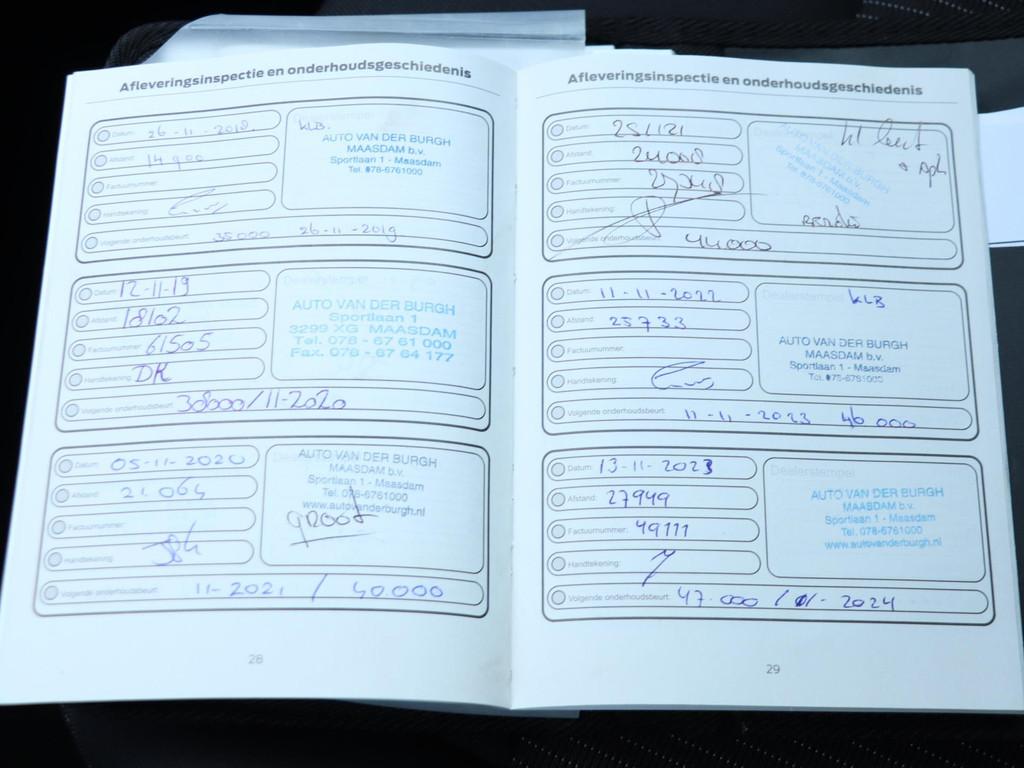 Afleveringsinspectie en onderhoudsgeschiedenis
Datum: 26-11-2018.
Afstand: 14900
Factuurnummer:
Handtekening:
Volgende onderhoudsbeurt: 35000 26-11-2019
KLB.
AUTO VAN DER BURGH
MAASDAM b.v.
Sportlaan 1 - Maasdam
Tel. 078-6761000
Datum: 12-11-19
Afstand: 18102
Factuurnummer: 61505
Handtekening: DK
Volgende onderhoudsbeurt: 38000/11-2020
Dealerstempel
AUTO VAN DER BURGH
Sportlaan 1
3299 XG MAASDAM
Tel. 078 - 67 61 000
Fax. 078 - 67 64 177
Datum: 05-11-2020
Afstand: 21.064
Factuurnummer:
Handtekening:
Volgende onderhoudsbeurt: 11-2021 / 40.000
AUTO VAN DER BURGH
MAASDAM b.v.
Sportlaan 1 - Maasdam
Tel. 078-6761000
www.autovanderburgh.nl
groot
28
Afleveringsinspectie en onderhoudsgeschiedenis
Datum:
Afstand: 24008
Factuurnummer:
Handtekening:
Volgende onderhoudsbeurt: 44000
Dealerstempel
AUTO VAN DER BURGH
MAASDAM b.v.
Sportlaan 1 - Maasdam
Tel. 078-6761000
Datum: 11-11-2022
Afstand: 25733
Factuurnummer:
Handtekening:
Volgende onderhoudsbeurt: 11-11-2023 46000
Dealerstempel KLB
AUTO VAN DER BURGH
MAASDAM b.v.
Sportlaan 1 - Maasdam
Tel. 078-6761000
Datum: 13-11-2023
Afstand: 27949
Factuurnummer: 49111
Handtekening:
Volgende onderhoudsbeurt: 47.000 / 11-2024
Dealerstempel
AUTO VAN DER BURGH
MAASDAM b.v.
Sportlaan 1 - Maasdam
Tel. 078-6761000
www.autovanderburgh.nl
29